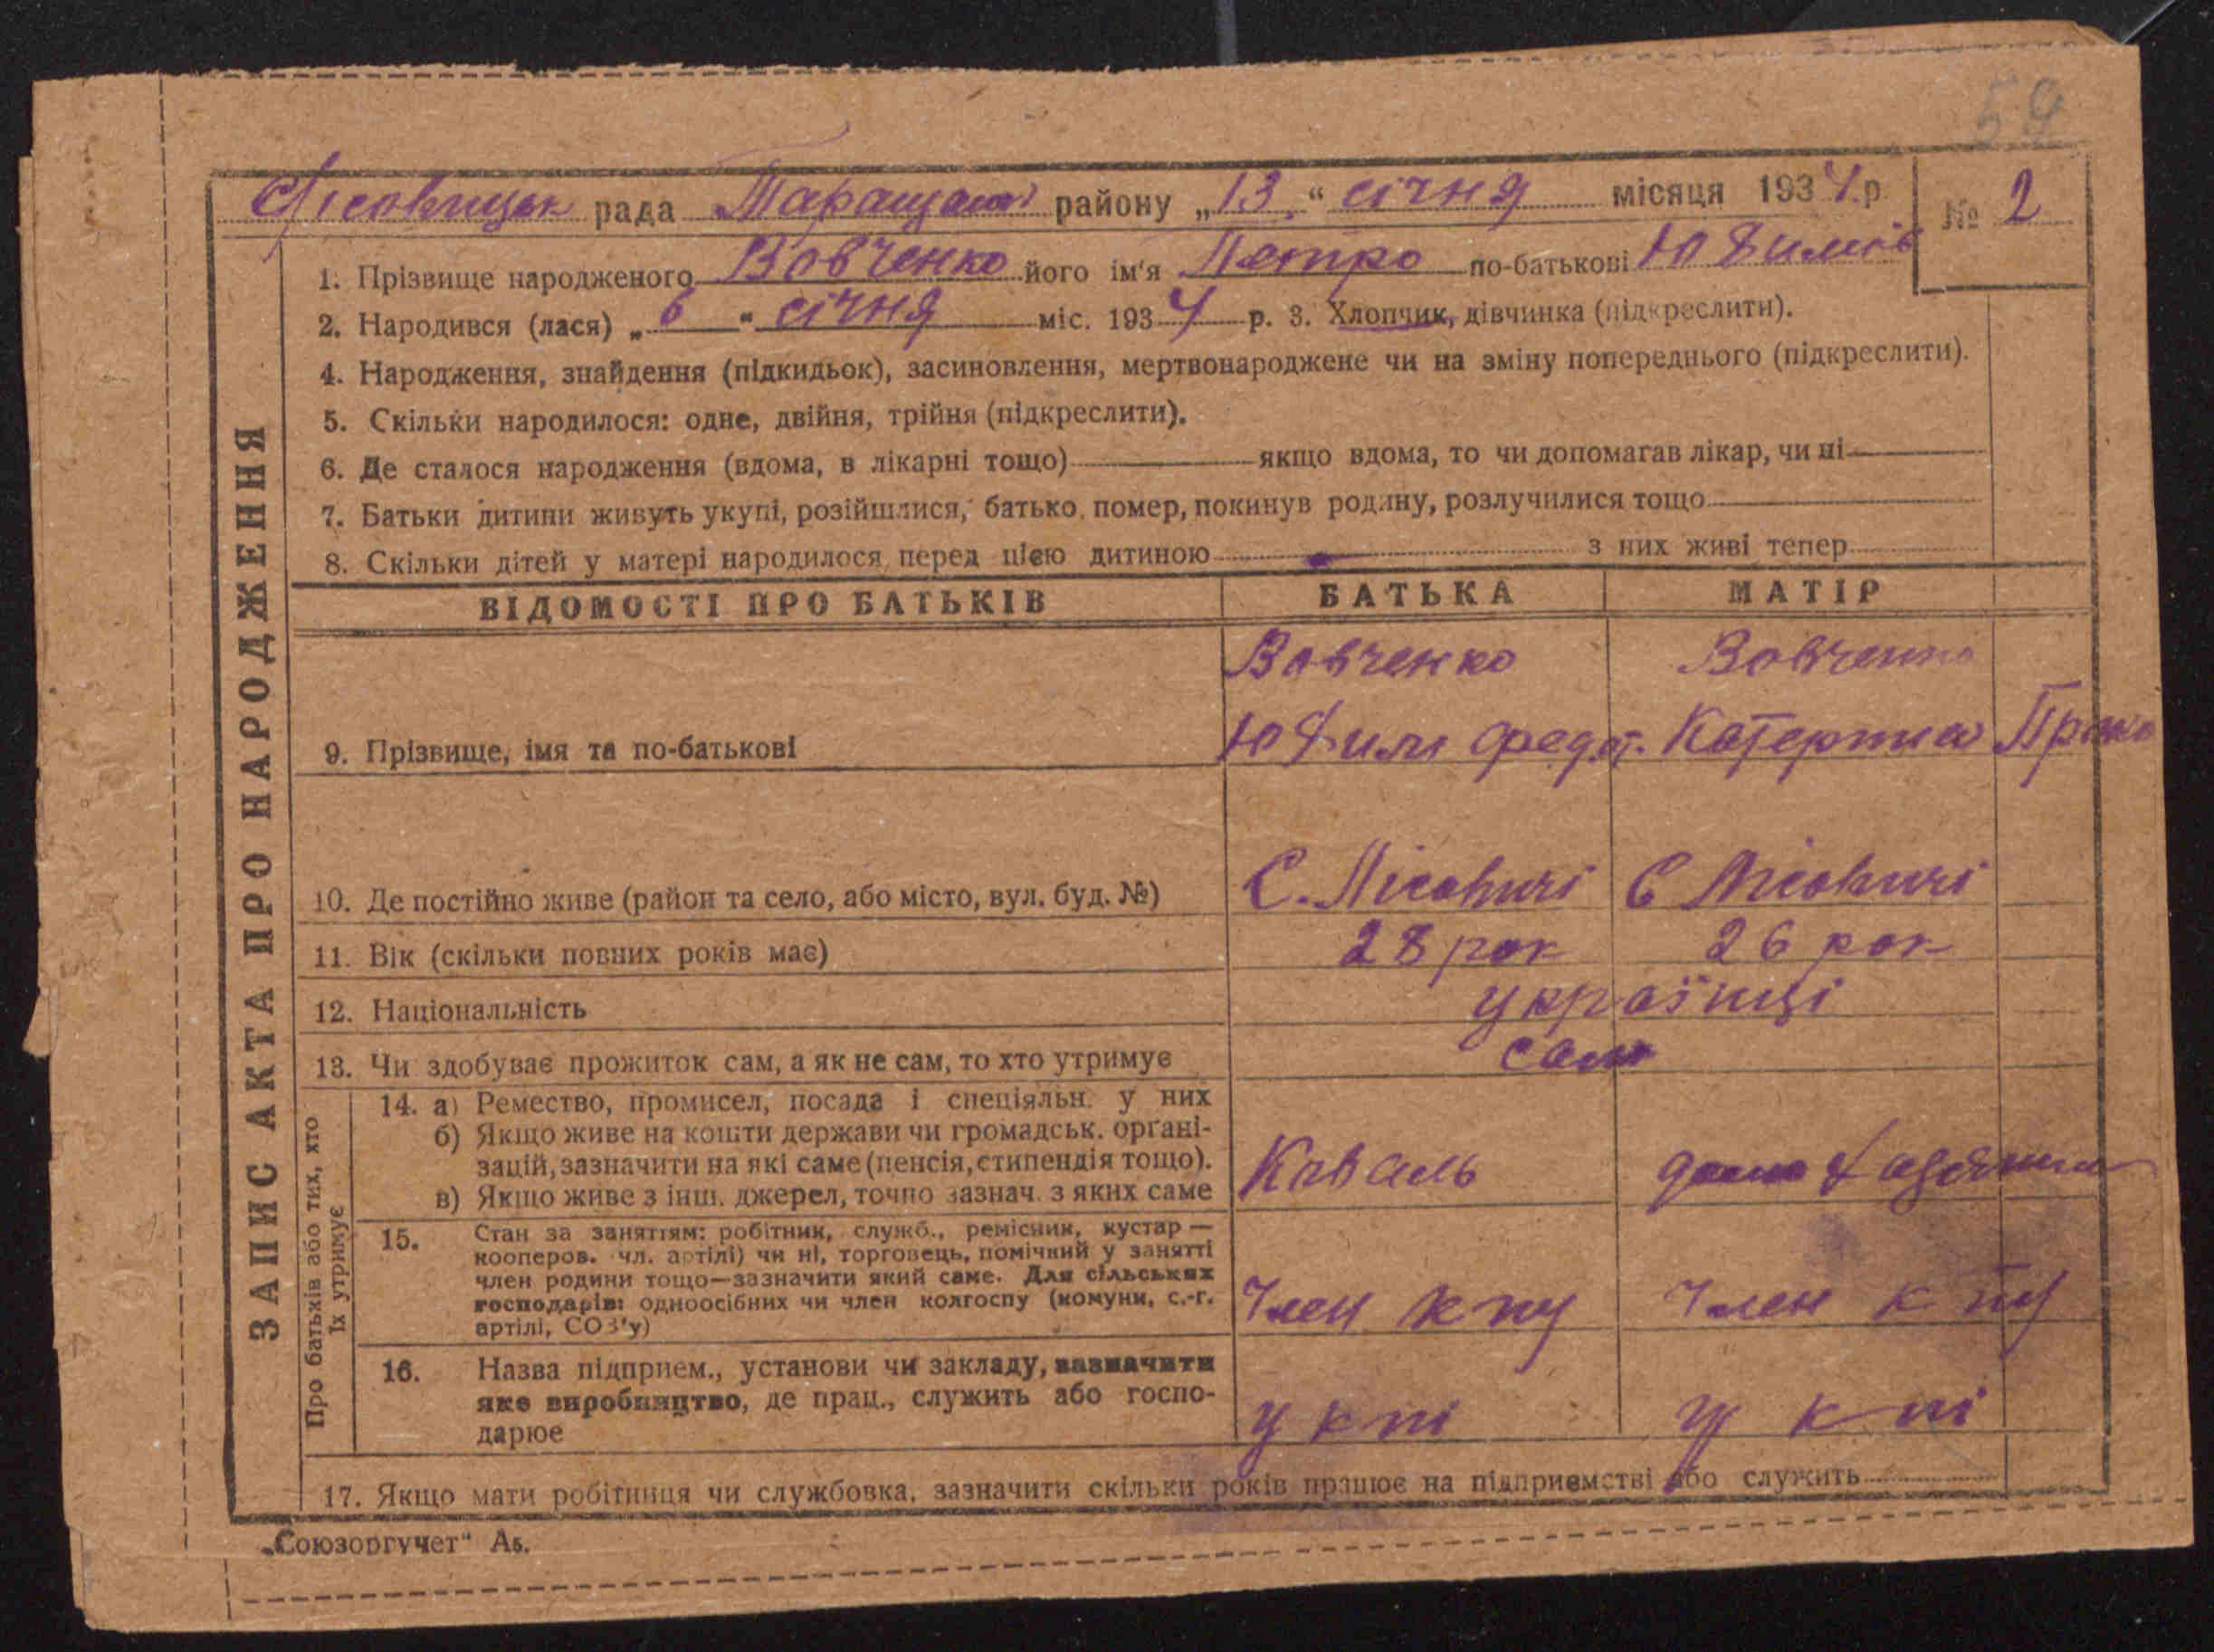 59
Лісовицьк рада Таращанс району „13“ січня місяця 1934 р. № 2
ЗАПИС АКТА ПРО НАРОДЖЕННЯ
1. Прізвище народженого Вовченко його ім'я Петро по-батькові Юхимів
2. Народився (лася) „6“ січня міс. 1934 р. 3. Хлопчик, дівчинка (підкреслити).
4. Народження, знайдення (підкидьок), засиновлення, мертвонароджене чи на зміну попереднього (підкреслити).
5. Скільки народилося: одне, двійня, трійня (підкреслити).
6. Де сталося народження (вдома, в лікарні тощо) якщо вдома, то чи допомагав лікар, чи ні
7. Батьки дитини живуть укупі, розійшлися, батько помер, покинув родину, розлучилися тощо
8. Скільки дітей у матері народилося перед цією дитиною з них живі тепер
ВІДОМОСТІ ПРО БАТЬКІВ БАТЬКА МАТІР
Вовченко Вовченко
9. Прізвище, імя та по-батькові Федот. Катерина
10. Де постійно живе (район та село, або місто, вул. буд. №) С. Лісовичі С Лісовичі
11. Вік (скільки повних років має) 28 рок 26 рок
12. Національність українці
13. Чи здобуває прожиток сам, а як не сам, то хто утримує сам
Про батьків або тих, хто
їх утримує
14. а) Ремество, промисел, посада і спеціяльн. у них
б) Якщо живе на кошти держави чи громадськ. орґані-
зацій, зазначити на які саме (пенсія, стипендія тощо).
в) Якщо живе з інш. джерел, точно зазнач. з яких саме Коваль
15. Стан за заняттям: робітник, служб., ремісник, кустар —
кооперов. чл. артілі) чи ні, торговець, помічний у занятті
член родини тощо—зазначити який саме. Для сільських
господарів: одноосібних чи член колгоспу (комуни, с.-г.
артілі, СОЗ'у) Член к пу Член к пу
16. Назва підприєм., установи чи закладу, зазначити
яке виробництво, де прац., служить або госпо-
дарює у к пі у к пі
17. Якщо мати робітниця чи службовка, зазначити скільки років працює на підприємстві або служить
„Союзоргучет“ А5.